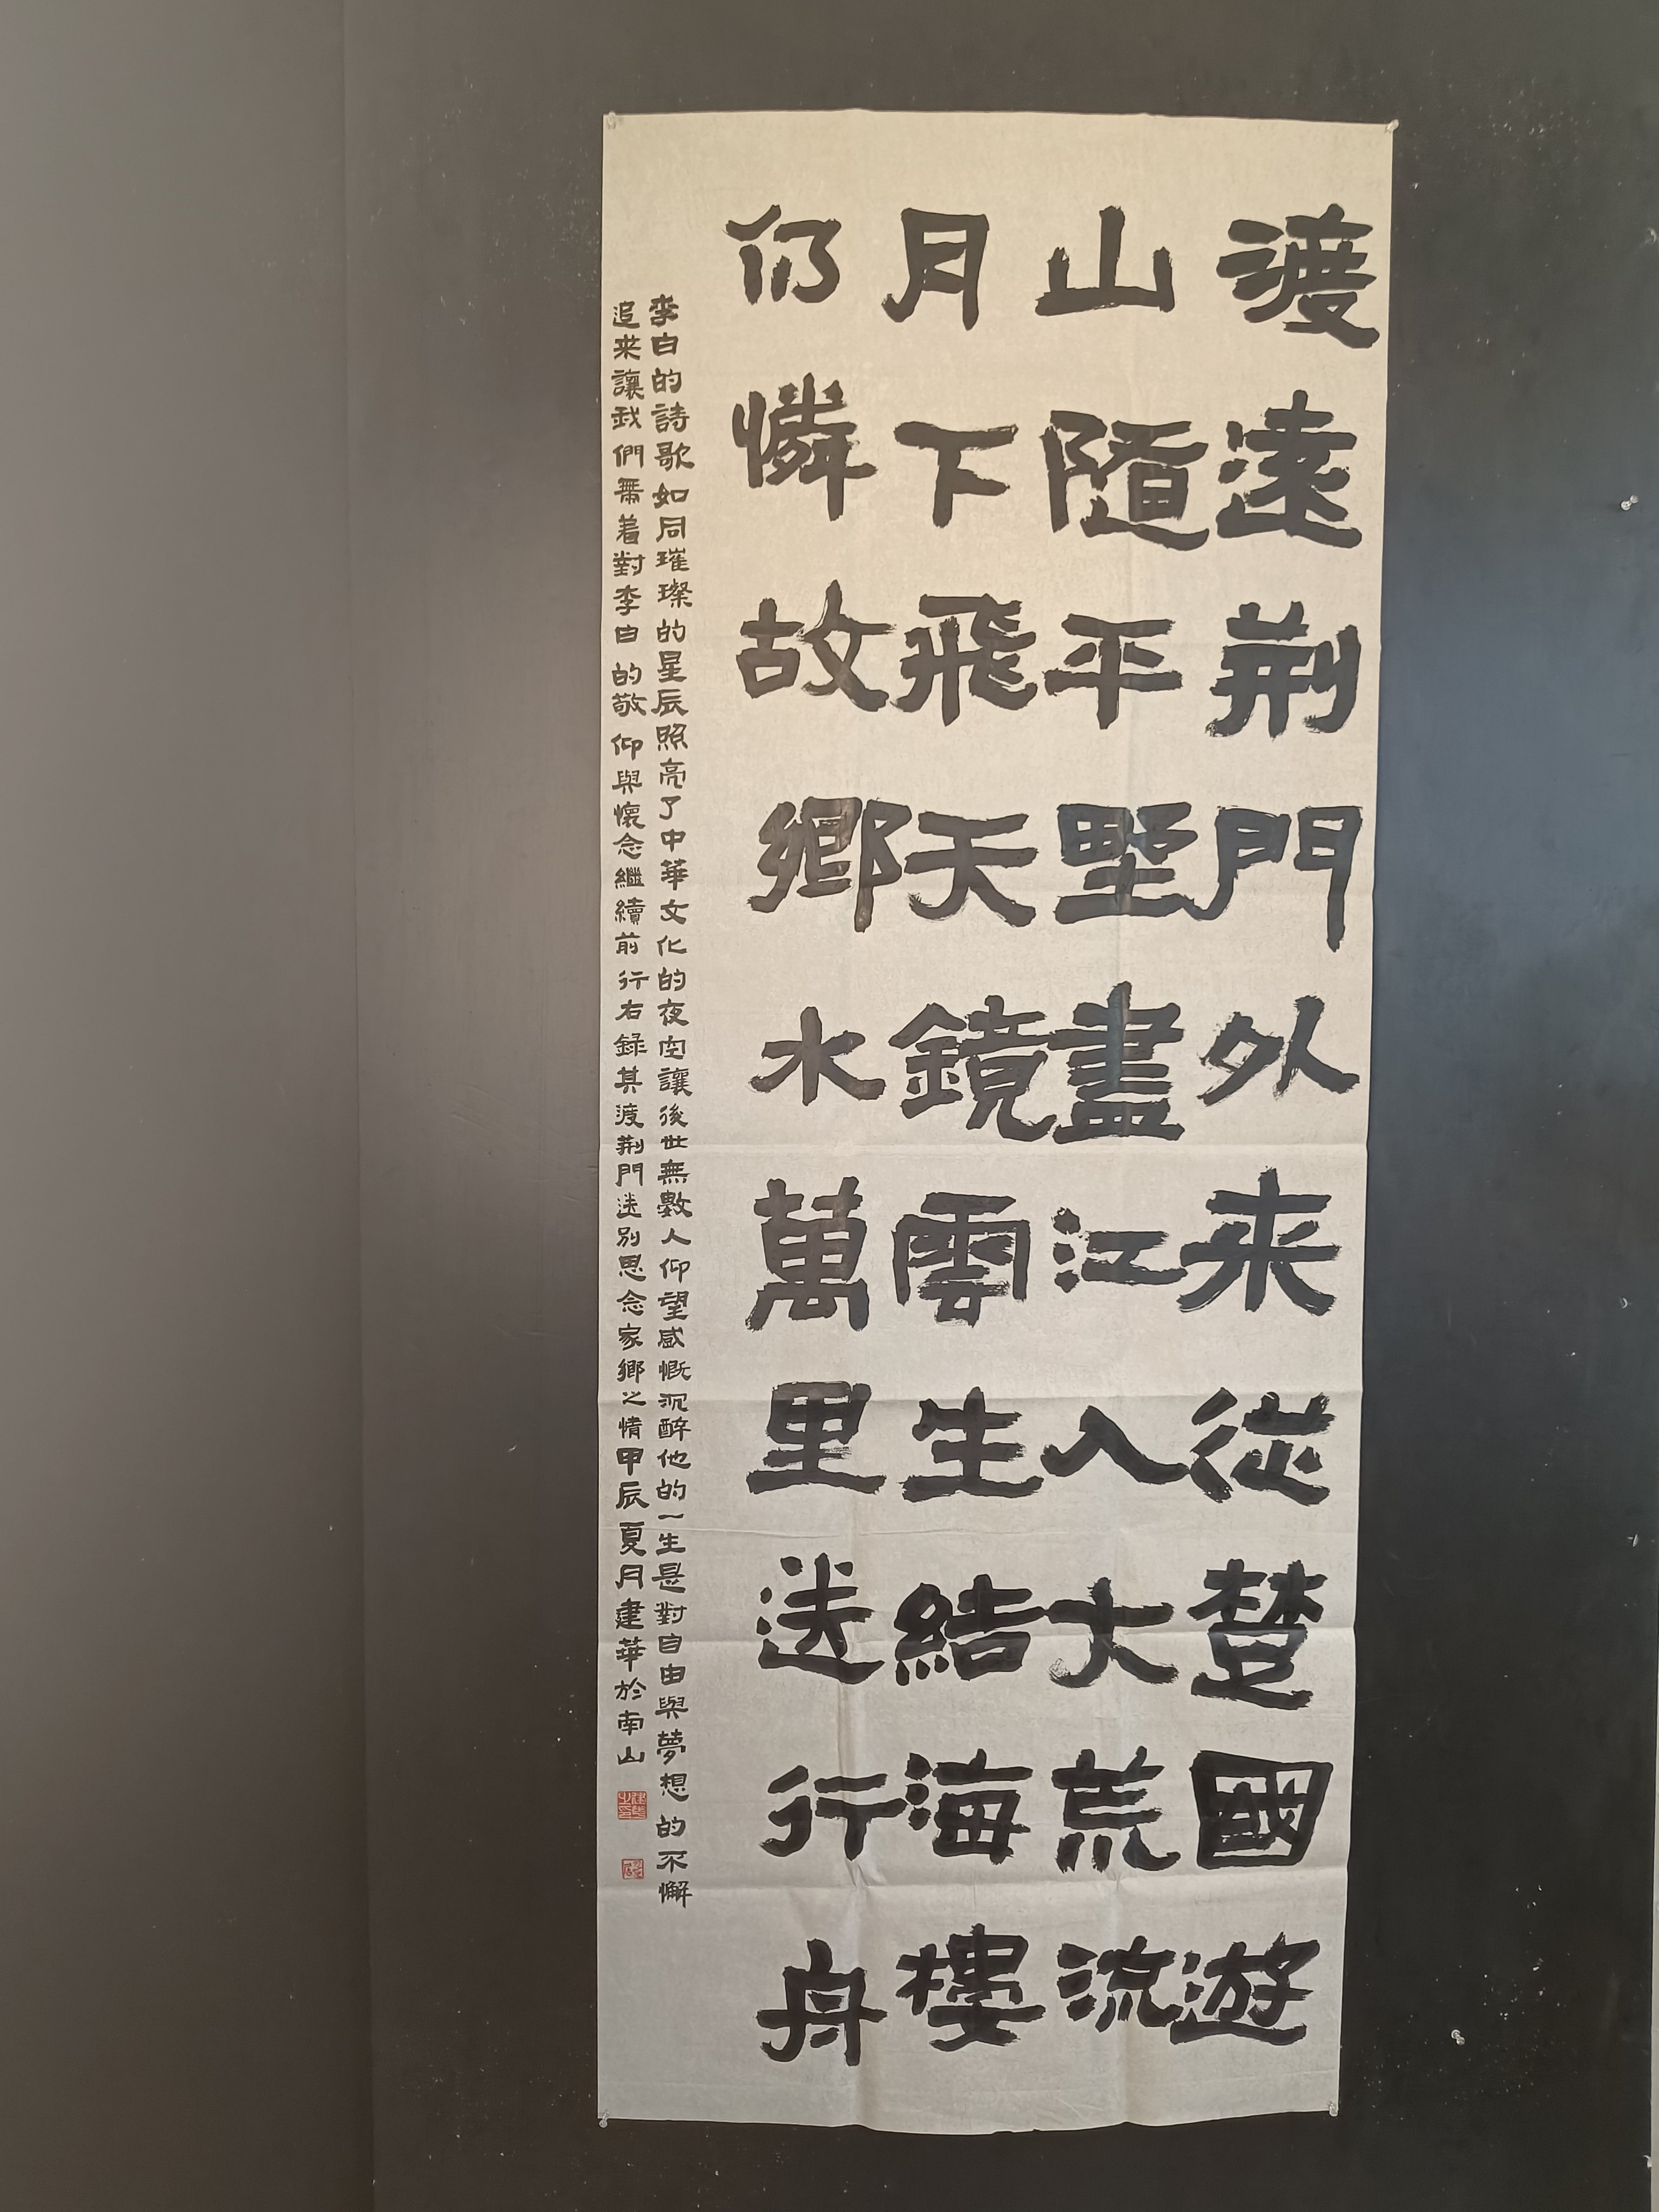 渡遠荊門外来從楚國遊
山隨平野盡江入大荒流
月下飛天鏡雲生結海樓
仍憐故鄉水萬里送行舟
李白的詩歌如同璀璨的星辰照亮了中華文化的夜空讓後世無數人仰望感慨沉醉他的一生是對自由與夢想的不懈
追来讓我們帶着對李白的敬仰與懷念繼續前行右錄其渡荊門送別思念家鄉之情甲辰夏月建華於南山